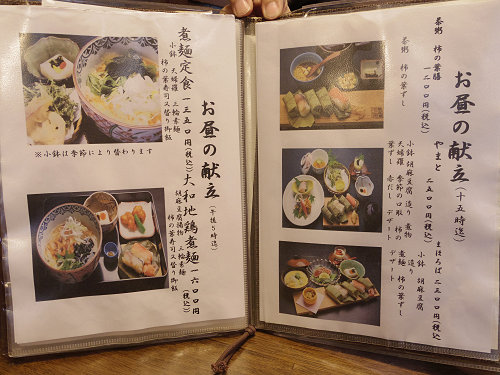 お昼の献立(十五時迄)
茶粥 柿の葉膳
一二〇〇円(税込)
茶粥 柿の葉ずし
やまと 二五〇〇円(税込)
小鉢 胡麻豆腐 造り 煮物
天婦羅 季節の口取 柿の
葉ずし 赤だし デザート
まほろば 二三〇〇円(税込)
小鉢 胡麻豆腐
造り
煮麺 柿の葉ずし
デザート
お昼の献立(午後3時迄)
煮麺定食 一三五〇円(税込)
小鉢 天婦羅 三輪素麺
柿の葉寿司又は替り御飯
※小鉢は季節により替わります
大和地鶏煮麺 一六〇〇円(税込)
胡麻豆腐揚物 三輪素麺
柿の葉寿司又替り御飯